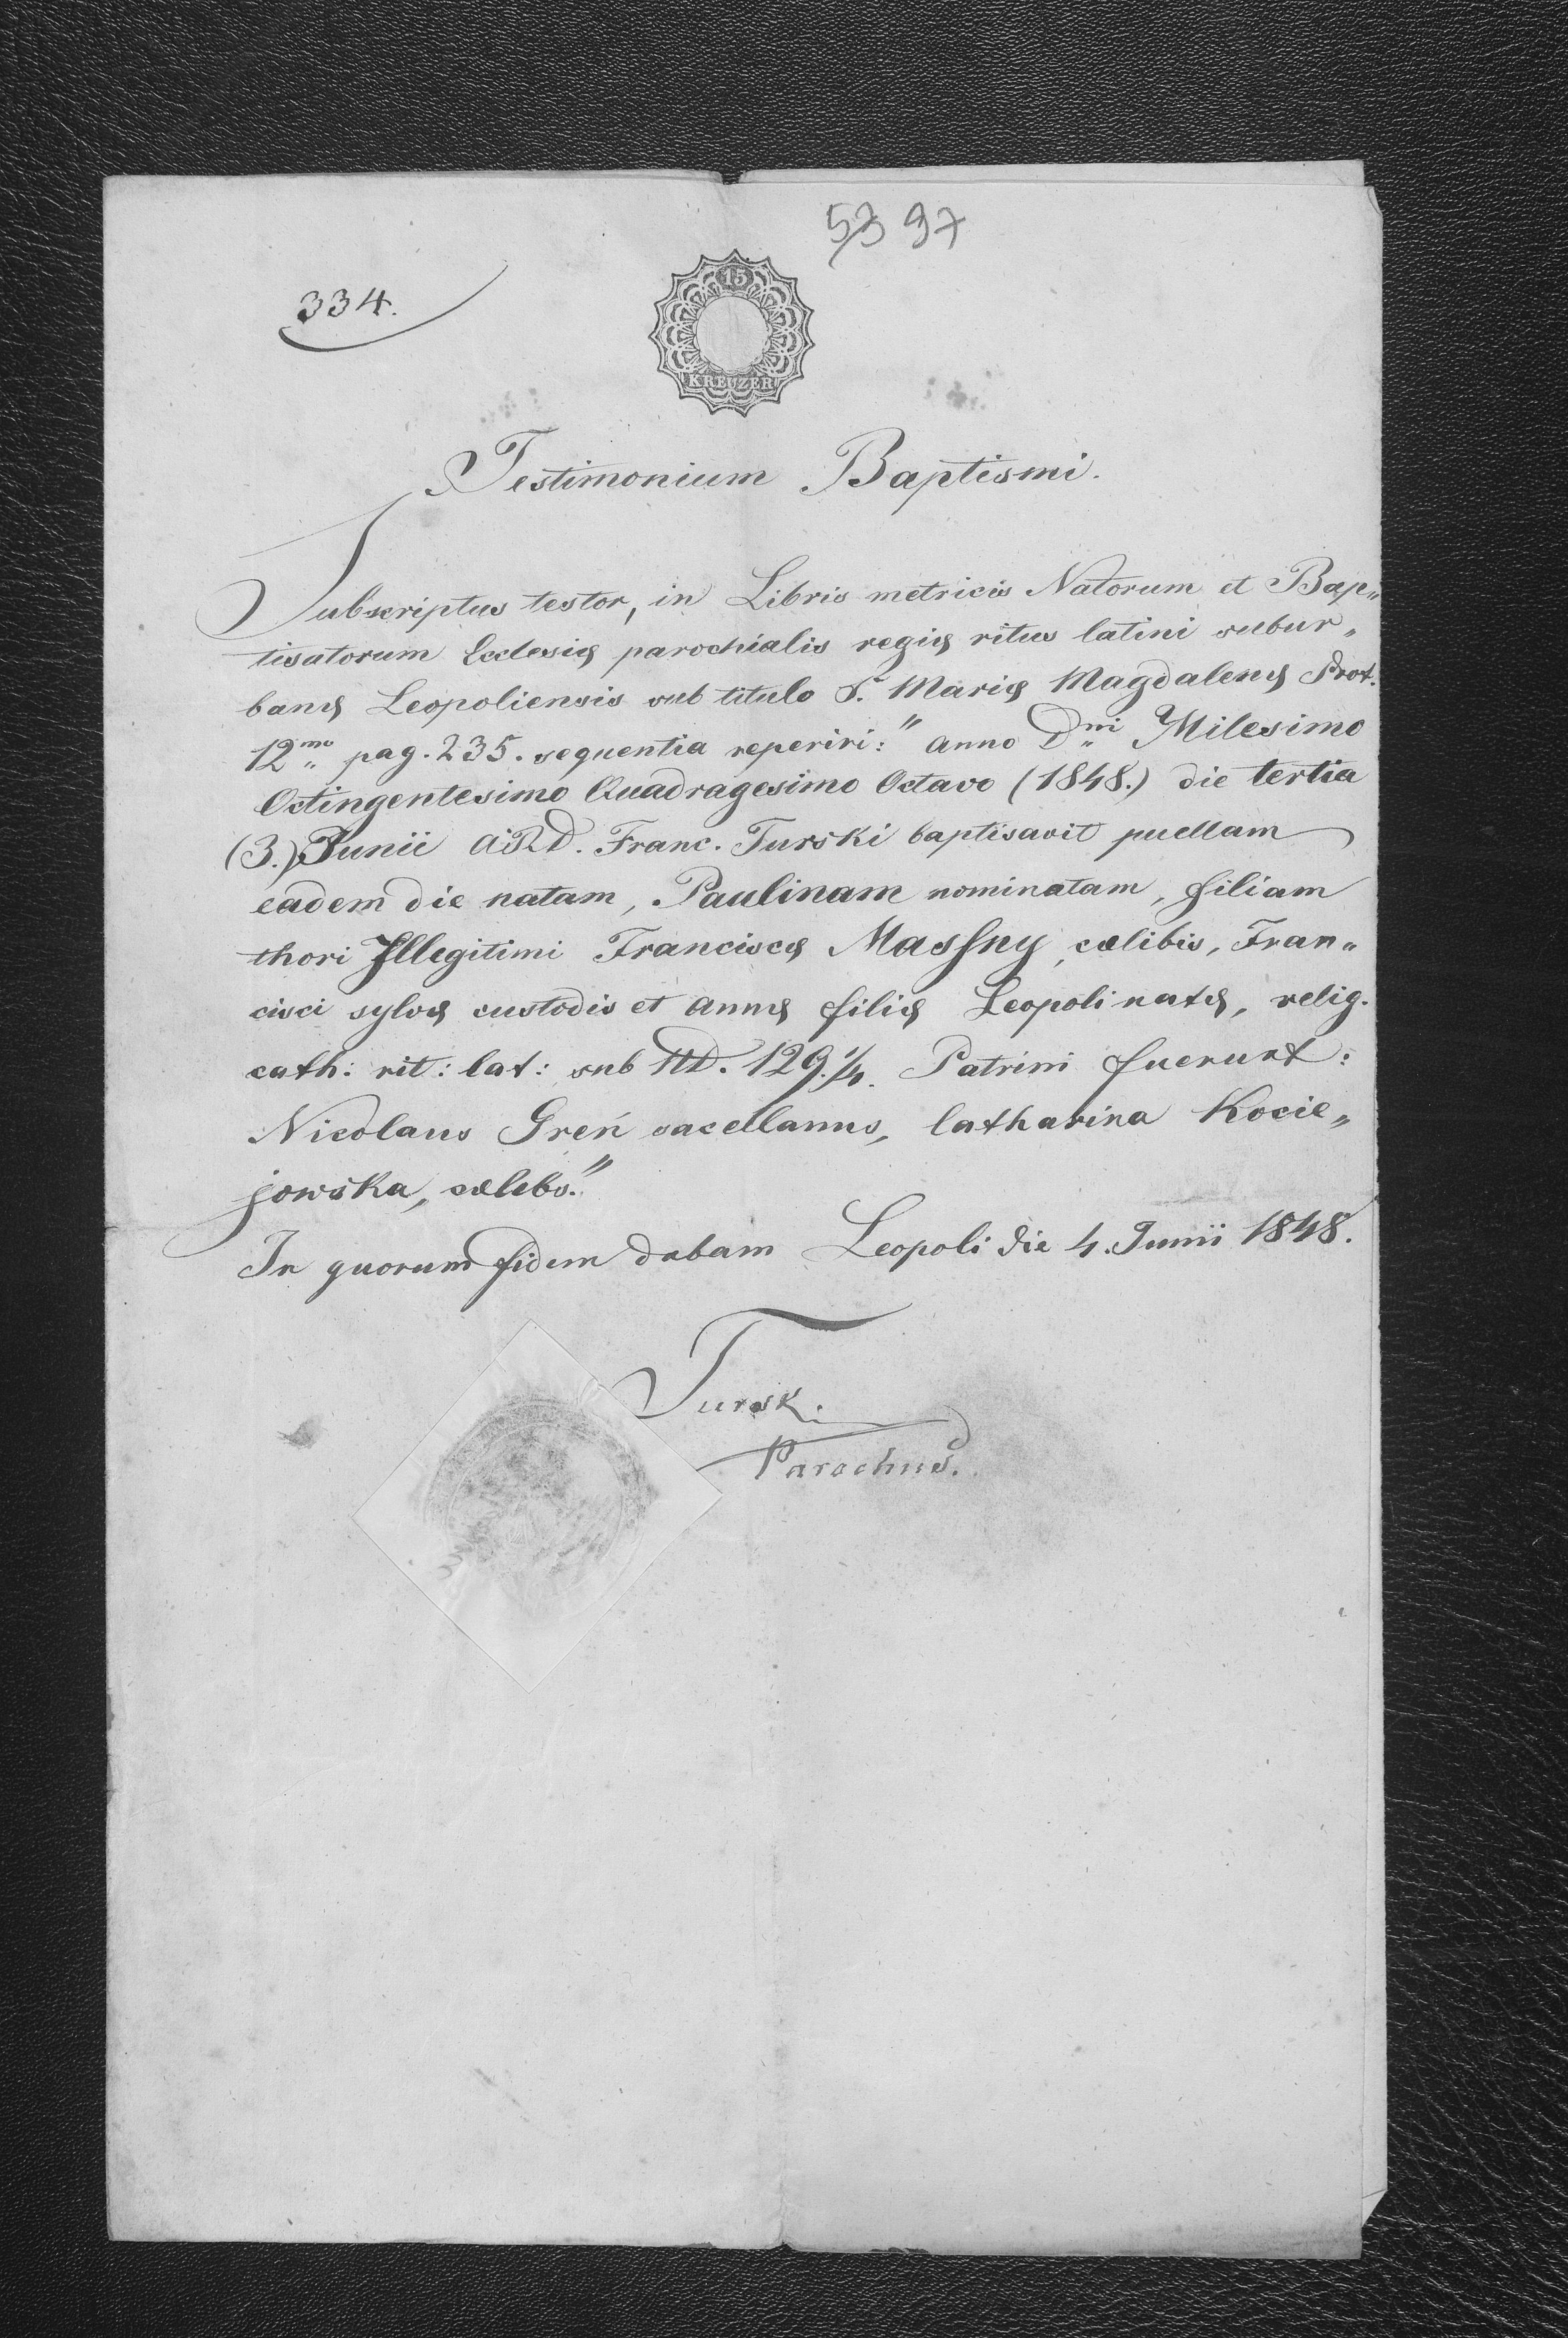 5397
334.
15
KREUZER
Testimonium Baptismi.
Subscriptus testor, in Libris metricis Natorum et Bap„
tisatorum Ecclesiæ parochialis regiæ ritus latini subur„
banæ Leopoliensis sub titulo S. Mariæ Magdalenæ Prot.
12mo pag. 235. sequentia reperiri: " Anno Dni Milesimo
Octingentesimo Quadragesimo Octavo (1848.) die tertia
(3.) Junii ARD. Franc. Turski baptisavit puellam
eadem die natam, Paulinam nominatam, filiam
thori Illegitimi Franciscæ Massny, cœlibis, Fran„
cisci sylvæ custodis et Annæ filiæ Leopoli natæ, relig.
cath: rit: lat: sub ND. 129.1/4. Patrini fuerunt:
Nicolaus Greń sacellanus, Catharina Kocie„
jowska, cœlebs."
In quorum fidem dabam Leopoli die 4. Junii 1848.
Turski
Parochus.